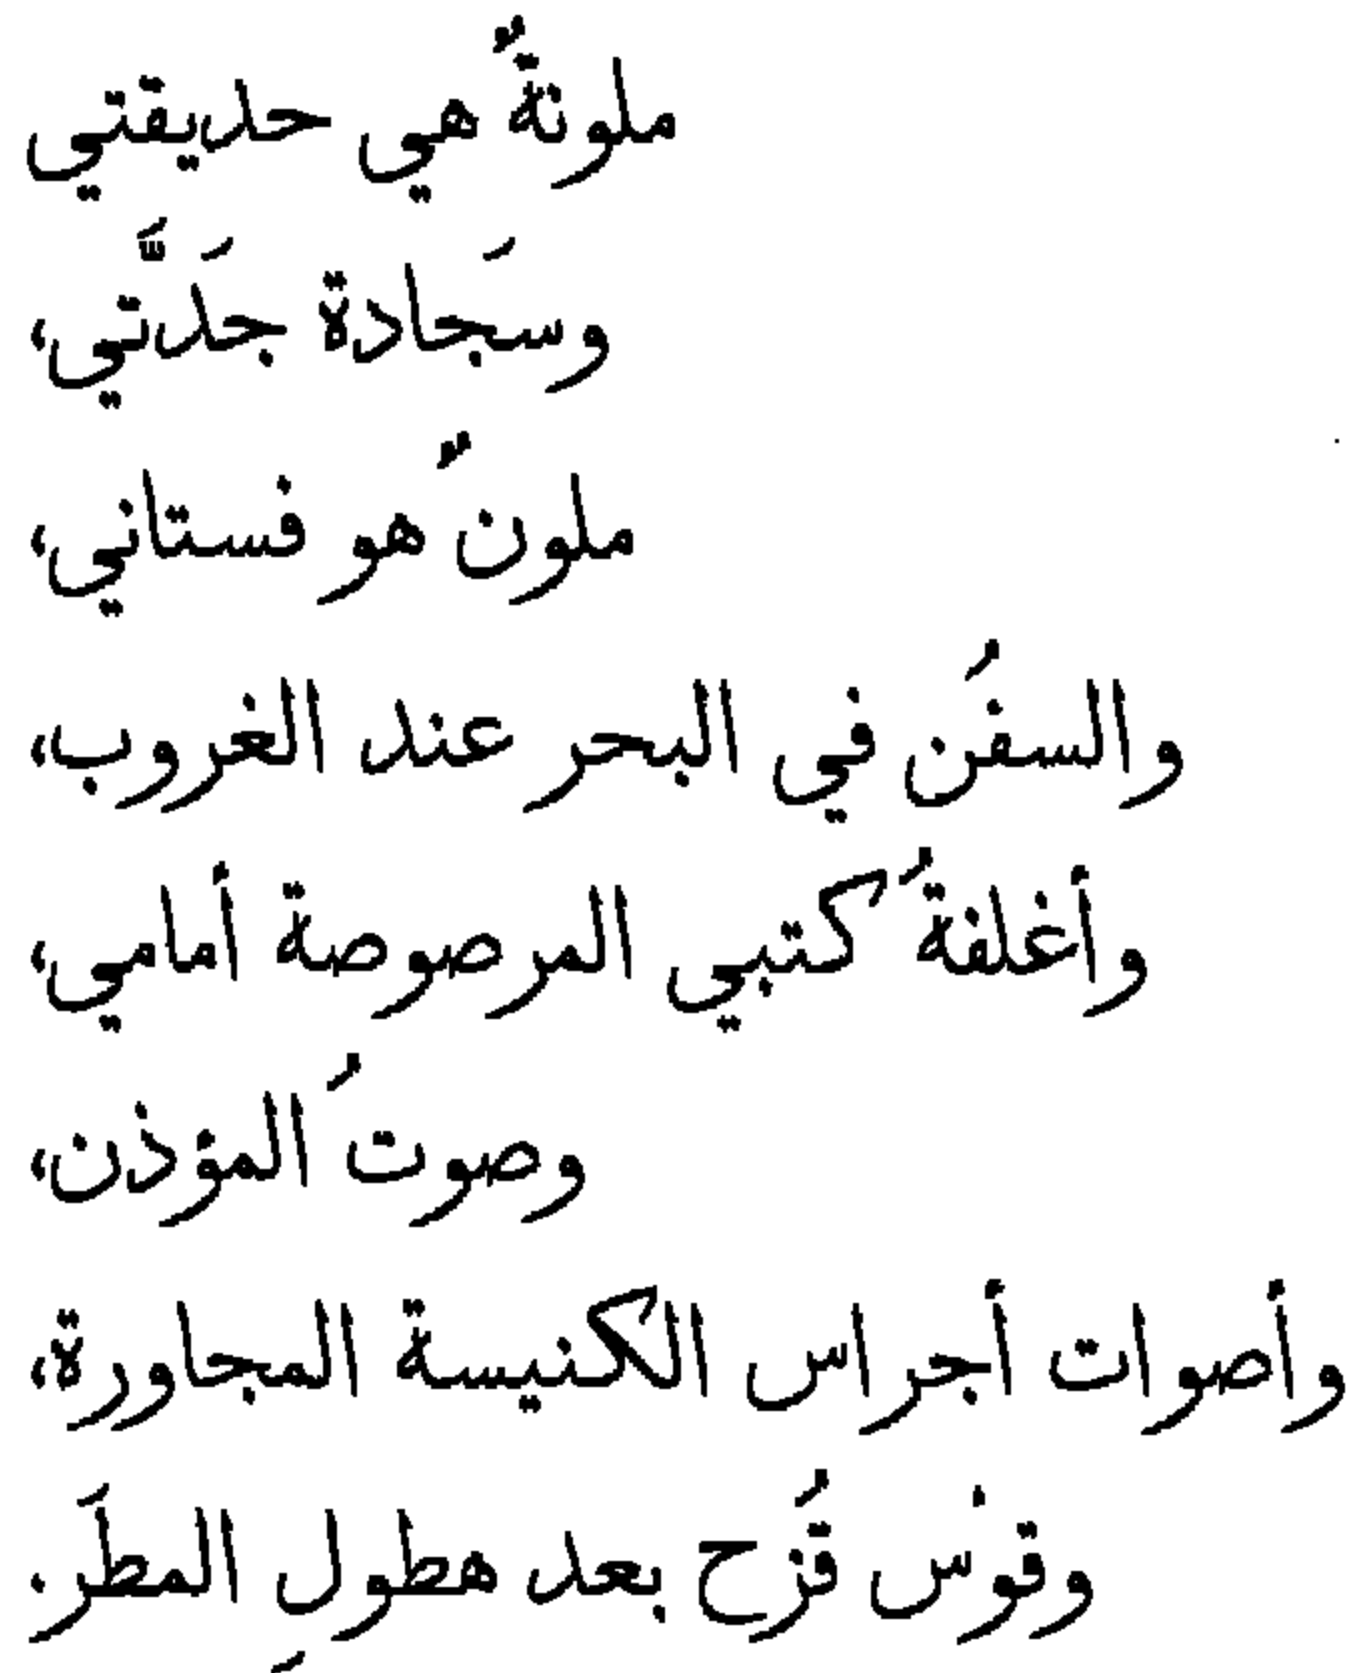 ملونةٌ هي حديقتي
وسَجادة جَدَّتي،
ملونٌ هو فستاني،
والسفُن في البحر عند الغروب،
وأغلفةُ كتبي المرصوصة أمامي،
وصوتُ المؤذن،
وأصوات أجراس الكنيسة المجاورة،
وقوْس قُزَح بعد هطولِ المطَر.